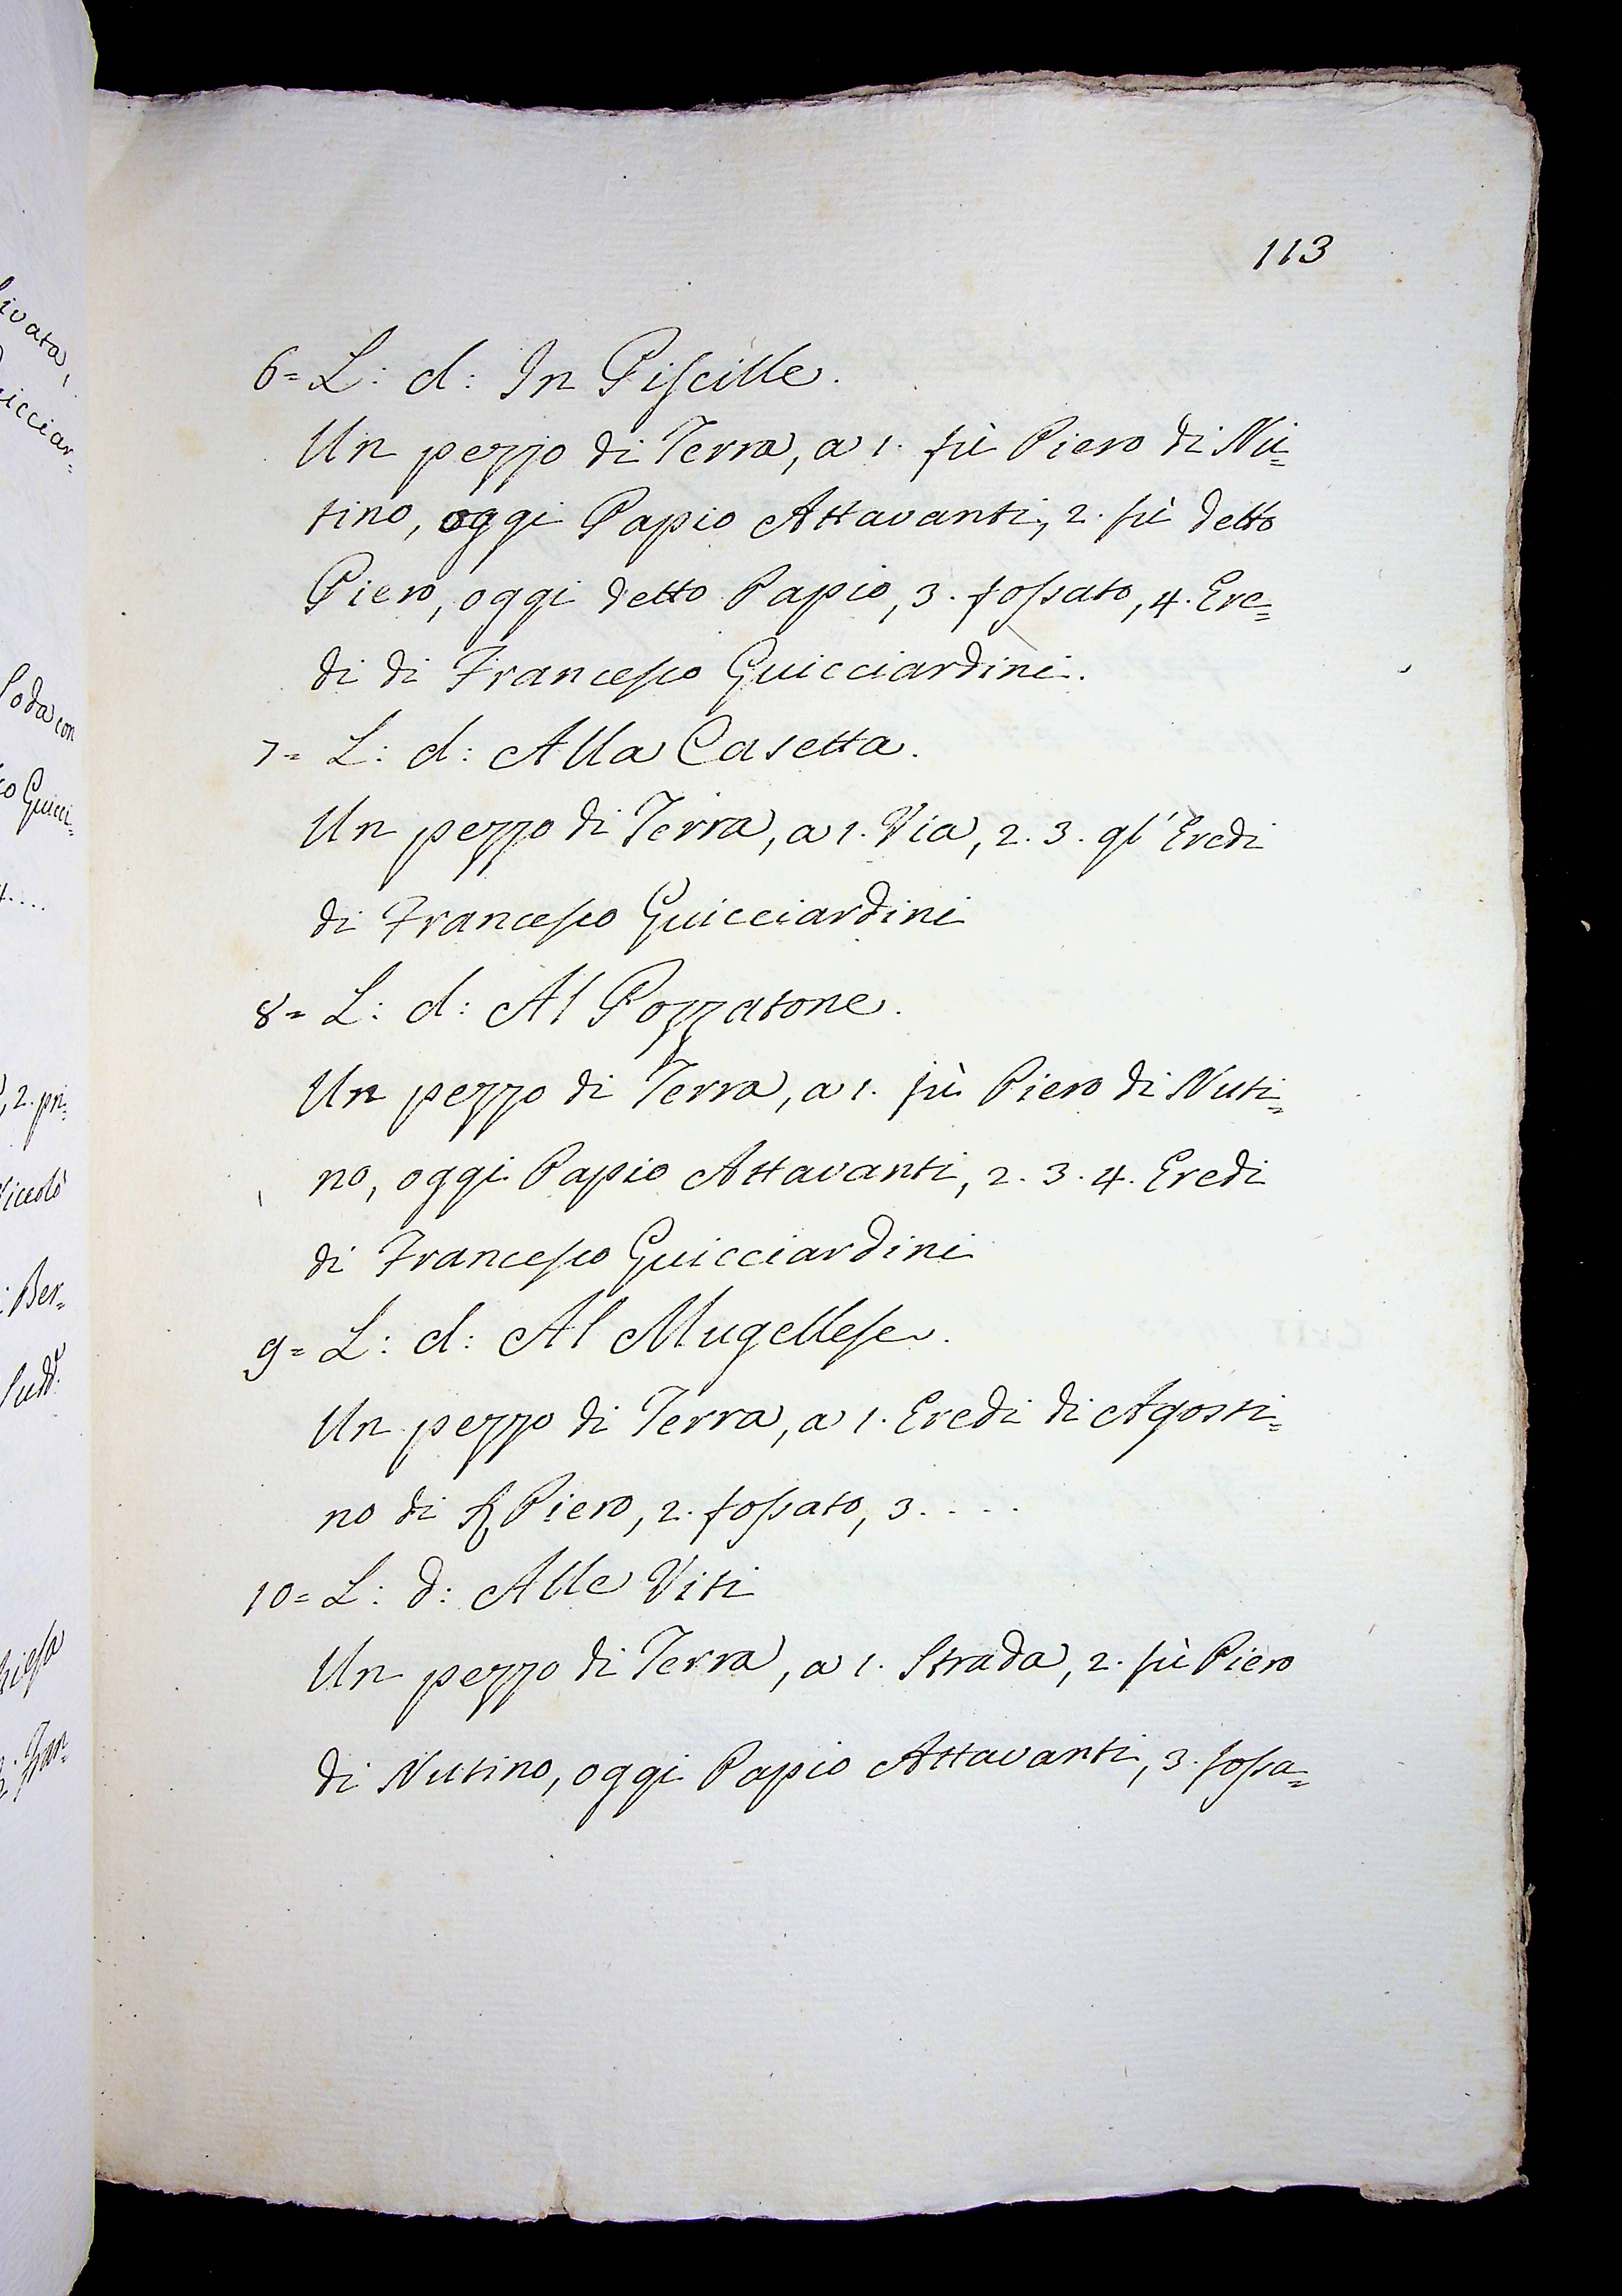 113
6= L: d: In Piscille.
Un pezzo di Terra, a 1. fù Piero di Nu=
tino, oggi Papio Attavanti, 2. fù detto
Piero, oggi detto Papio, 3. fossato, 4. Ere=
di di Francesco Guicciardini.
7= L: d: Alla Casetta.
Un pezzo di Terra, a 1. Via, 2. 3. gl' Eredi
di Francesco Guicciardini
8= L: d: Al Pozzatone.
Un pezzo di Terra, a 1. fù Piero di Nuti=
no, oggi Papio Attavanti, 2. 3. 4. Eredi
di Francesco Guicciardini
9= L: d: Al Mugellese.
Un pezzo di Terra, a 1. Eredi di Agosti=
no di Piero, 2. fossato, 3. . . .
10= L: d: Alle Viti
Un pezzo di Terra, a 1. Strada, 2. fù Piero
di Nutino, oggi Papio Attavanti, 3. fossa=